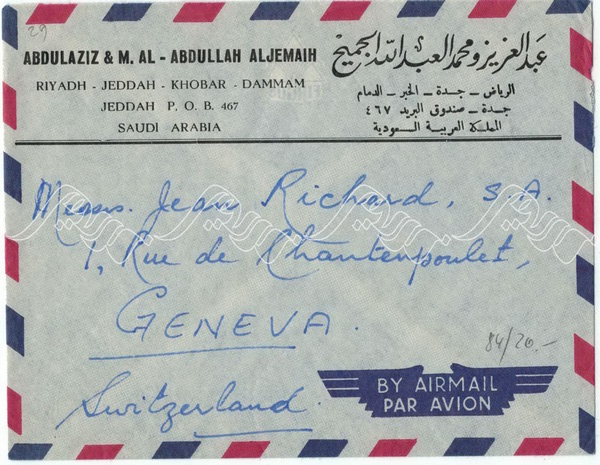 29
ABDULAZIZ & M. AL - ABDULLAH ALJEMAIH
RIYADH - JEDDAH - KHOBAR - DAMMAM
JEDDAH P. O. B. 467
SAUDI ARABIA
عبد العزيز ومحمد العبد الله الجميح
الرياض - جدة - الخبر - الدمام
جدة - صندوق البريد ٤٦٧
المملكة العربية السعودية
Messrs. Jean Richard, S.A.
1, Rue de Chantepoulet,
GENEVA.
Switzerland.
84/20.-
BY AIRMAIL
PAR AVION